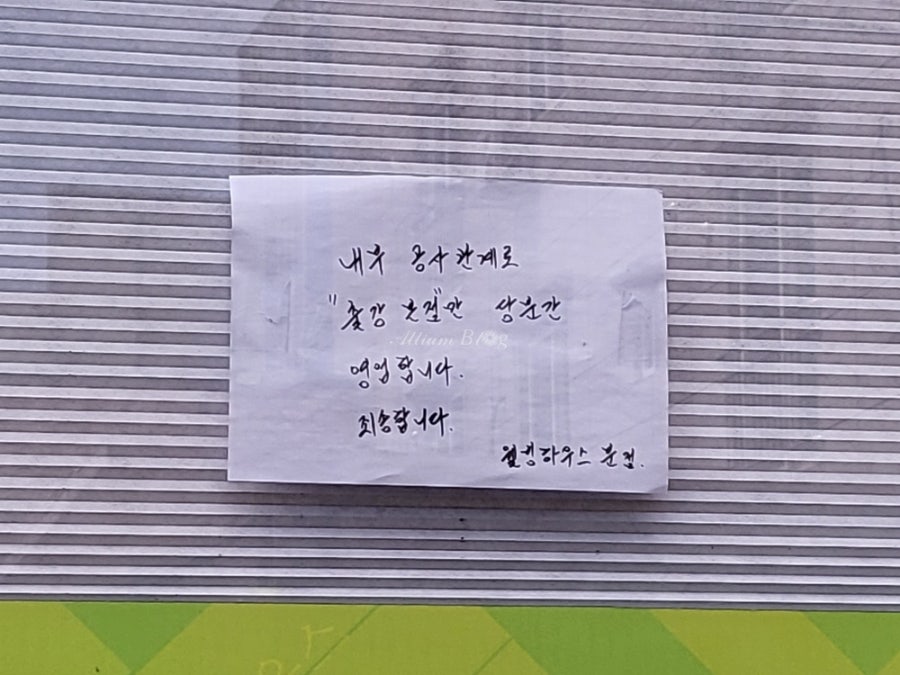 내부 공사관계로
본점"만 당분간
Allium Blog
영업합니다.
죄송합니다.
웰빙하우스 분점.